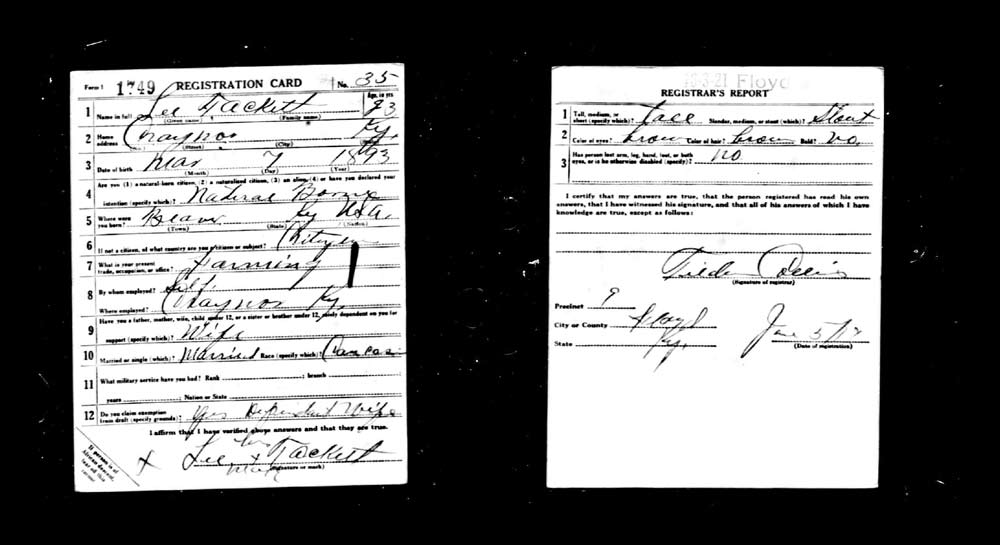 Form 1 1749 REGISTRATION CARD No. 35
1 Name in full Lee Tackett Age, in yrs. 23
(Given name) (Family name)
2 Home address Ky.
(Street) (City)
3 Date of birth Mar 7 1893
(Month) (Day) (Year)
4 Are you (1) a natural-born citizen, (2) a naturalized citizen, (3) an alien, (4) or have you declared your
intention (specify which)? Natural Borne
5 Where were you born? Beaver Ky USA.
(Town) (State) (Nation)
6 If not a citizen, of what country are you a citizen or subject? Citizen
7 What is your present trade, occupation, or office? Farming
8 By whom employed? Self.
Where employed? Ky
9 Have you a father, mother, wife, child under 12, or a sister or brother under 12, solely dependent on you for
support (specify which)? Wife
10 Married or single (which)? Married Race (specify which)?
11 What military service have you had? Rank ; branch
years ; Nation or State
12 Do you claim exemption from draft (specify grounds)? Yes Dependent Wife
I affirm that I have verified above answers and that they are true.
his
X Lee x Tackett
mark
(Signature or mark)
If person is of
African descent,
tear off this
corner
Floyd
REGISTRAR'S REPORT
1 Tall, medium, or short (specify which)? Tall Slender, medium, or stout (which)? Stout
2 Color of eyes? brown Color of hair? brown Bald? no.
3 Has person lost arm, leg, hand, foot, or both eyes, or is he otherwise disabled (specify)? no
I certify that my answers are true, that the person registered has read his own
answers, that I have witnessed his signature, and that all of his answers of which I have
knowledge are true, except as follows:
(Signature of registrar)
Precinct 9
City or County Floyd
State Ky.
June 5/17
(Date of registration)